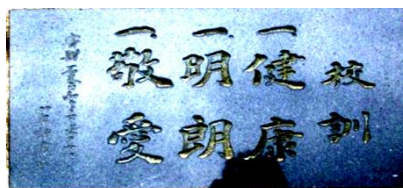 校訓
一健康
一明朗
一敬愛